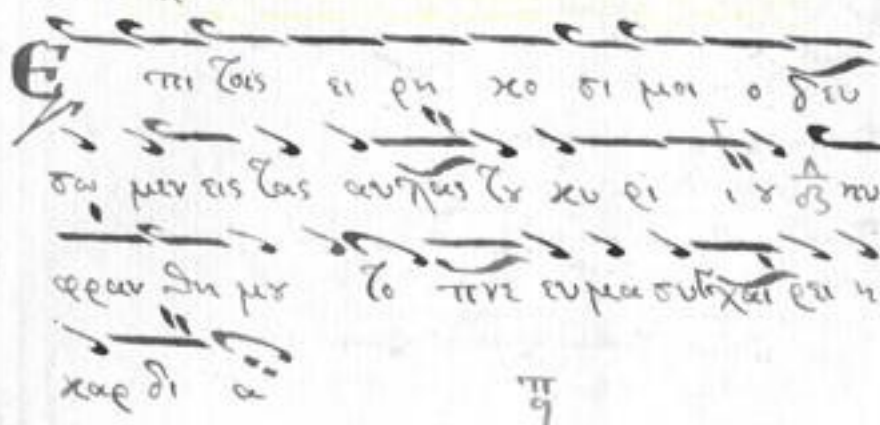 Ε πι τοις ει ρη κο σι μοι ο δευ
σω μεν εις τας αυλας του κυ ρι ι ου ηυ
φραν θη μου το πνε ευ μα συγχαι ρει η
καρ δι α